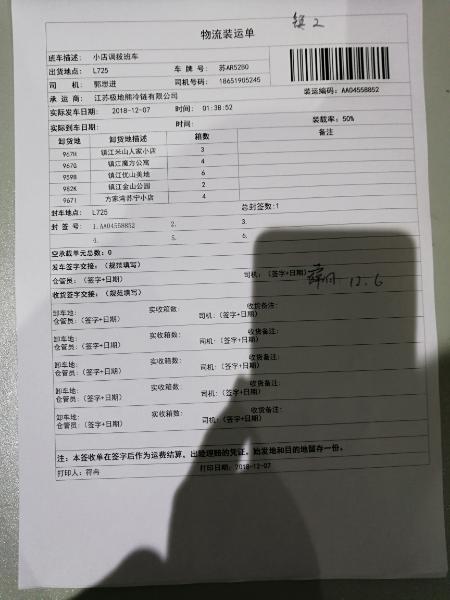 镇2
物流装运单
班车描述: 小店调拨班车
出货地点: L725 车 牌 号: 苏AR5280
司 机: 郭思进 司机号码: 18651905245
承 运 商: 江苏极地熊冷链有限公司 装运编码: AA04558852
实际发车日期: 2018-12-07 时间: 01:38:52
实际到车日期: 时间: 装载率: 50%
卸货地 卸货地描述 箱数 备注
967H 镇江米山人家小店 3
967G 镇江魔方公寓 4
959B 镇江优山美地 6
982K 镇江金山公园 2
9671 方家湾苏宁小店 4
封车地点: L725 总封签数:1
封 签 号: 1.AA04558852 2. 3.
4. 5. 6.
空承载单元总数: 0
发车签字交接: (规范填写)
仓管员: (签字+日期) 司机: (签字+日期) 12.6
收货签字交接: (规范填写)
卸车地: 实收箱数: 收货备注:
仓管员: (签字+日期) 司机: (签字+日期)
卸车地: 实收箱数: 收货备注:
仓管员: (签字+日期) 司机: (签字+日期)
卸车地: 实收箱数: 收货备注:
仓管员: (签字+日期) 司机: (签字+日期)
卸车地: 实收箱数: 收货备注:
仓管员: (签字+日期) 司机: (签字+日期)
卸车地: 实收箱数: 收货备注:
仓管员: (签字+日期) 司机: (签字+日期)
注: 本签收单在签字后作为运费结算、出险理赔的凭证。始发地和目的地留存一份。
打印人: 符冉 打印日期: 2018-12-07